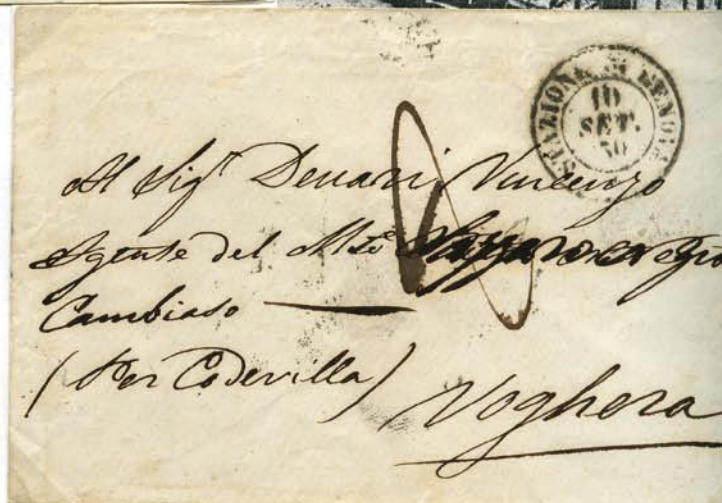 STAZIONE DI GENOVA
10
SET.
Al Sigr Denari Vincenzo
Agente del
Cambiaso
(Per Codevilla)
Voghera